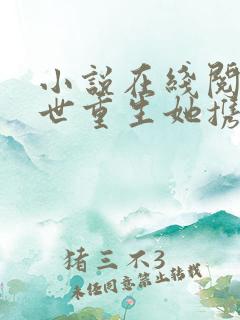 小说在线阅
世重生她携
猪三不3
未经同意禁止转载